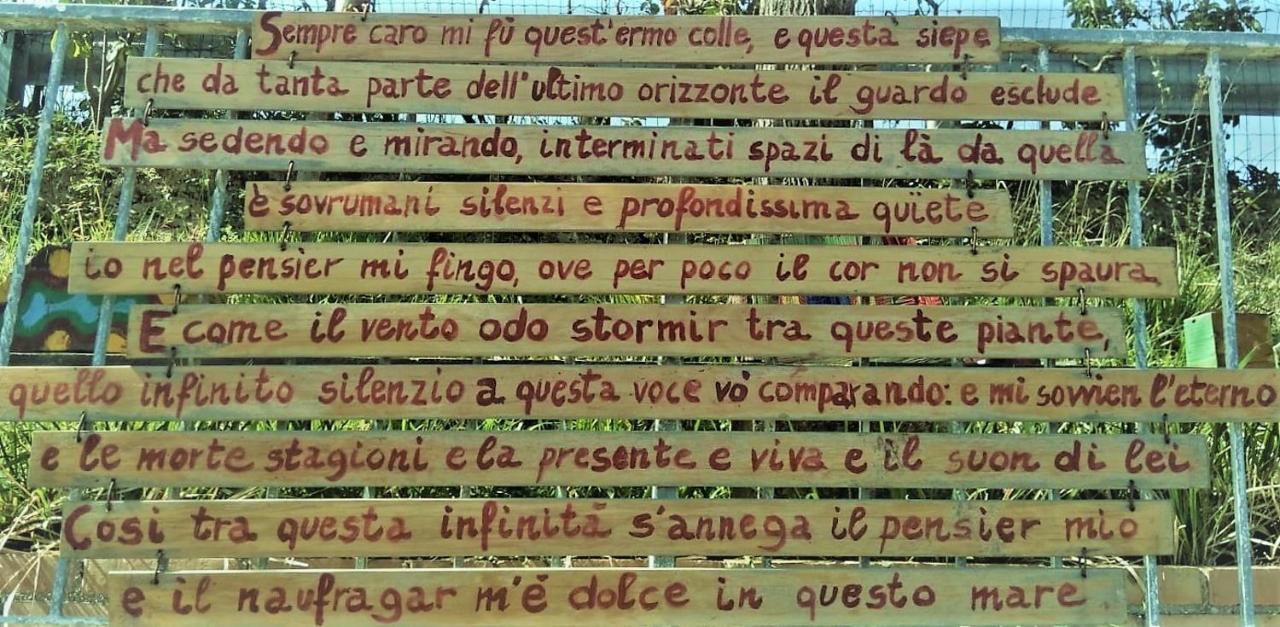 Sempre caro mi fù quest'ermo colle, e questa siepe
che da tanta parte dell'ultimo orizzonte il guardo esclude
Ma sedendo e mirando, interminati spazi di là da quella
è sovrumani silenzi e profondissima quïete
io nel pensier mi fingo, ove per poco il cor non si spaura,
E come il vento odo stormir tra queste piante,
quello infinito silenzio a questa voce vò comparando: e mi sovvien l'eterno
e le morte stagioni e la presente e viva e il suon di lei
Così tra questa infinità s'annega il pensier mio
e il naufragar m'è dolce in questo mare